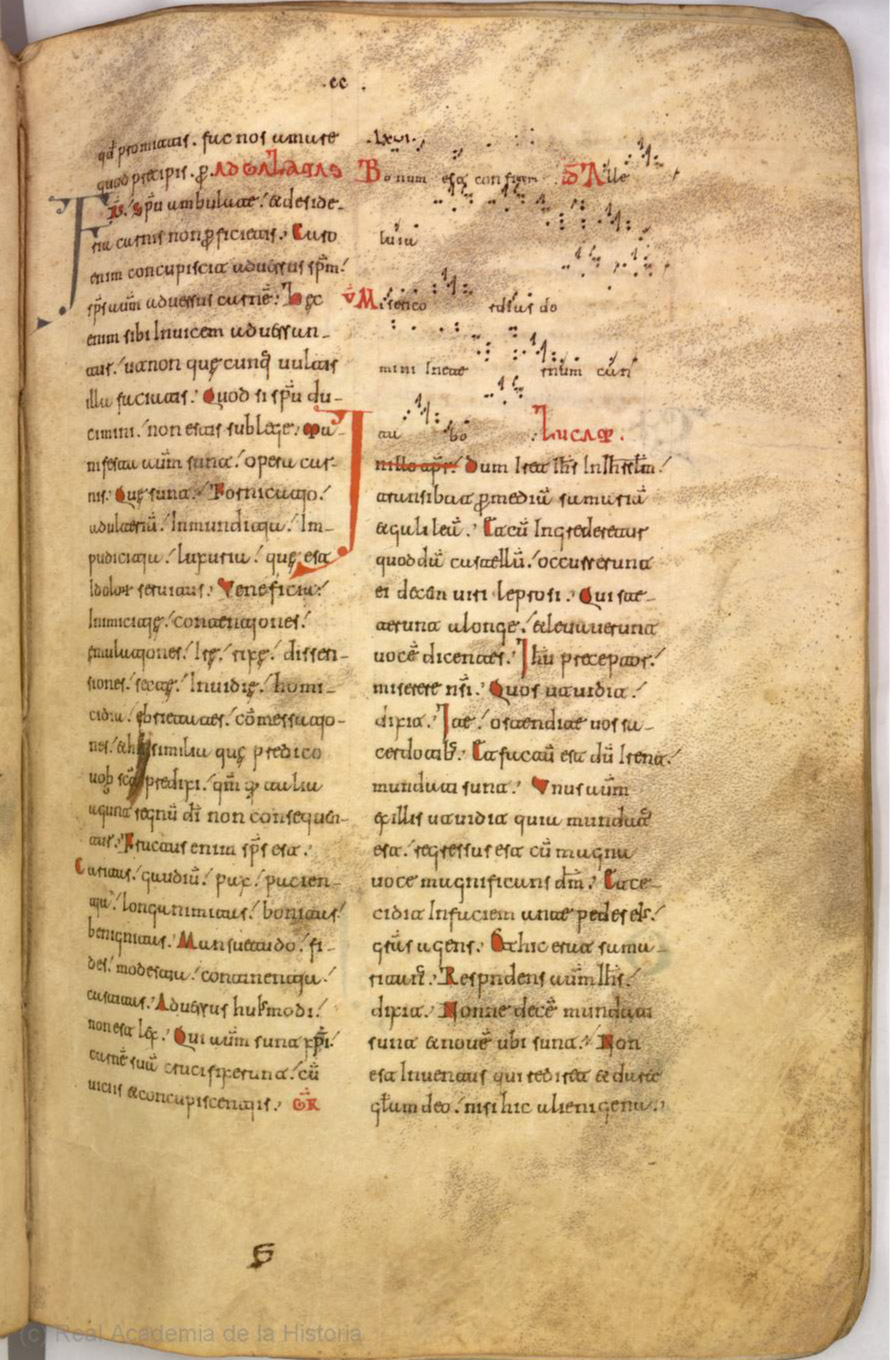 .cc.
qd promittis. fac nos amare
quod precipis. p. AD GALATAS
Fr̄s. Spū ambulate. & deside-
ria carnis non pficietis. Caro
enim concupiscit aduersus spm̄.
sps autm̄ aduersus carnē. Hec
enim sibi Inuicem aduersan-
tur. ut non quecunq uultis
illa faciatis. Quod si spū du-
cimini. non estis sub lege. Ma-
nifesta autm̄ sunt. opera car-
nis. Que sunt. Fornicatio.
adulteriū. Inmunditia. Im-
pudicitia. luxuria. que est
Idolor seruitus. Veneficia.
Inimicitie. contentiones.
emulationes. Ire. rixe. dissen-
siones. secte. Inuidie. homi-
cidia. ebrietates. cōmessatio-
nes. & his similia que predico
uob sic predixi. qm̄ q talia
agunt regnū dī non consequen-
tur. Fructus enim sps est.
Caritas. gaudiū. pax. pacien-
tia. longanimitas. bonitas.
benignitas. Mansuetudo. fi-
des. modestia. continentia.
castitas. Aduersus hui'modi.
non est lex. Qui autm̄ sunt xpi.
carnē suā crucifixerunt. cū
uiciis & concupiscentiis. GR
.lxvi.
Bonum est confiteri Alle
luia
V Misericordias do
mini In eternum can
ta bo LUCAM.
In illo tpr. Dum Iret Ihs In Ihrslm.
transibat p mediū samariā
& galileā. Et cū Ingrederetur
quoddā castellū. occurrerunt
ei decem uiri leprosi. Qui ste-
terunt a longe. & leuauerunt
uocē dicentes. Ihū preceptor.
miserere nri. Quos ut uidit.
dixit. Ite. ostendite uos sa-
cerdotib. Et factū est dū Irent.
mundati sunt. Vnus autm̄
ex illis ut uidit quia mundat'
est. regressus est cū magna
uoce magnificans dm̄. Et ce-
cidit In faciem ante pedes ei'.
grās agens. Et hic erat sama-
ritan'. Respndens autm̄ Ihs.
dixit. Nonne decē mundati
sunt & nouē ubi sunt. Non
est Inuentus qui rediret & daret
glam deo. nisi hic alienigena.
G
(c) Real Academia de la Historia